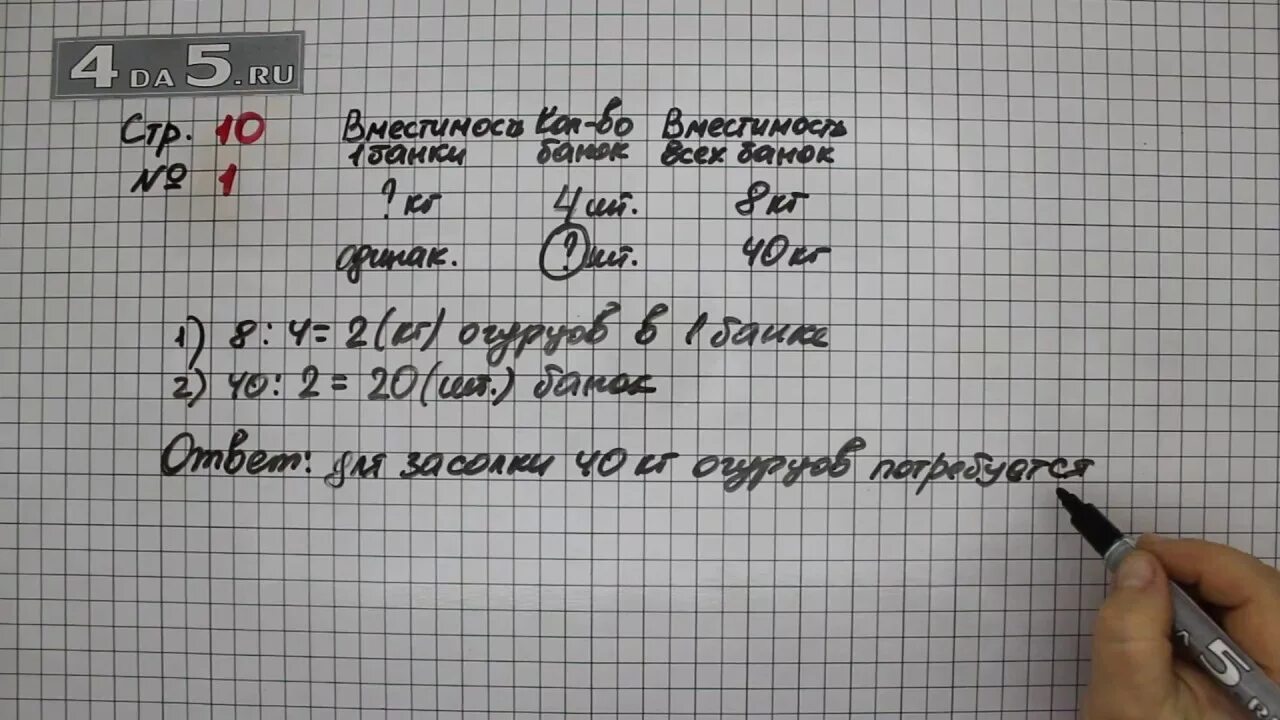 4DA5.RU
Стр. 10
№ 1
Вместимость Кол-во Вместимость
1 банки банок всех банок
? кг 4 шт. 8 кг
одинак. ? шт. 40 кг
1) 8 : 4 = 2 (кг) огурцов в 1 банке
2) 40 : 2 = 20 (шт.) банок
Ответ: для засолки 40 кг огурцов потребуется